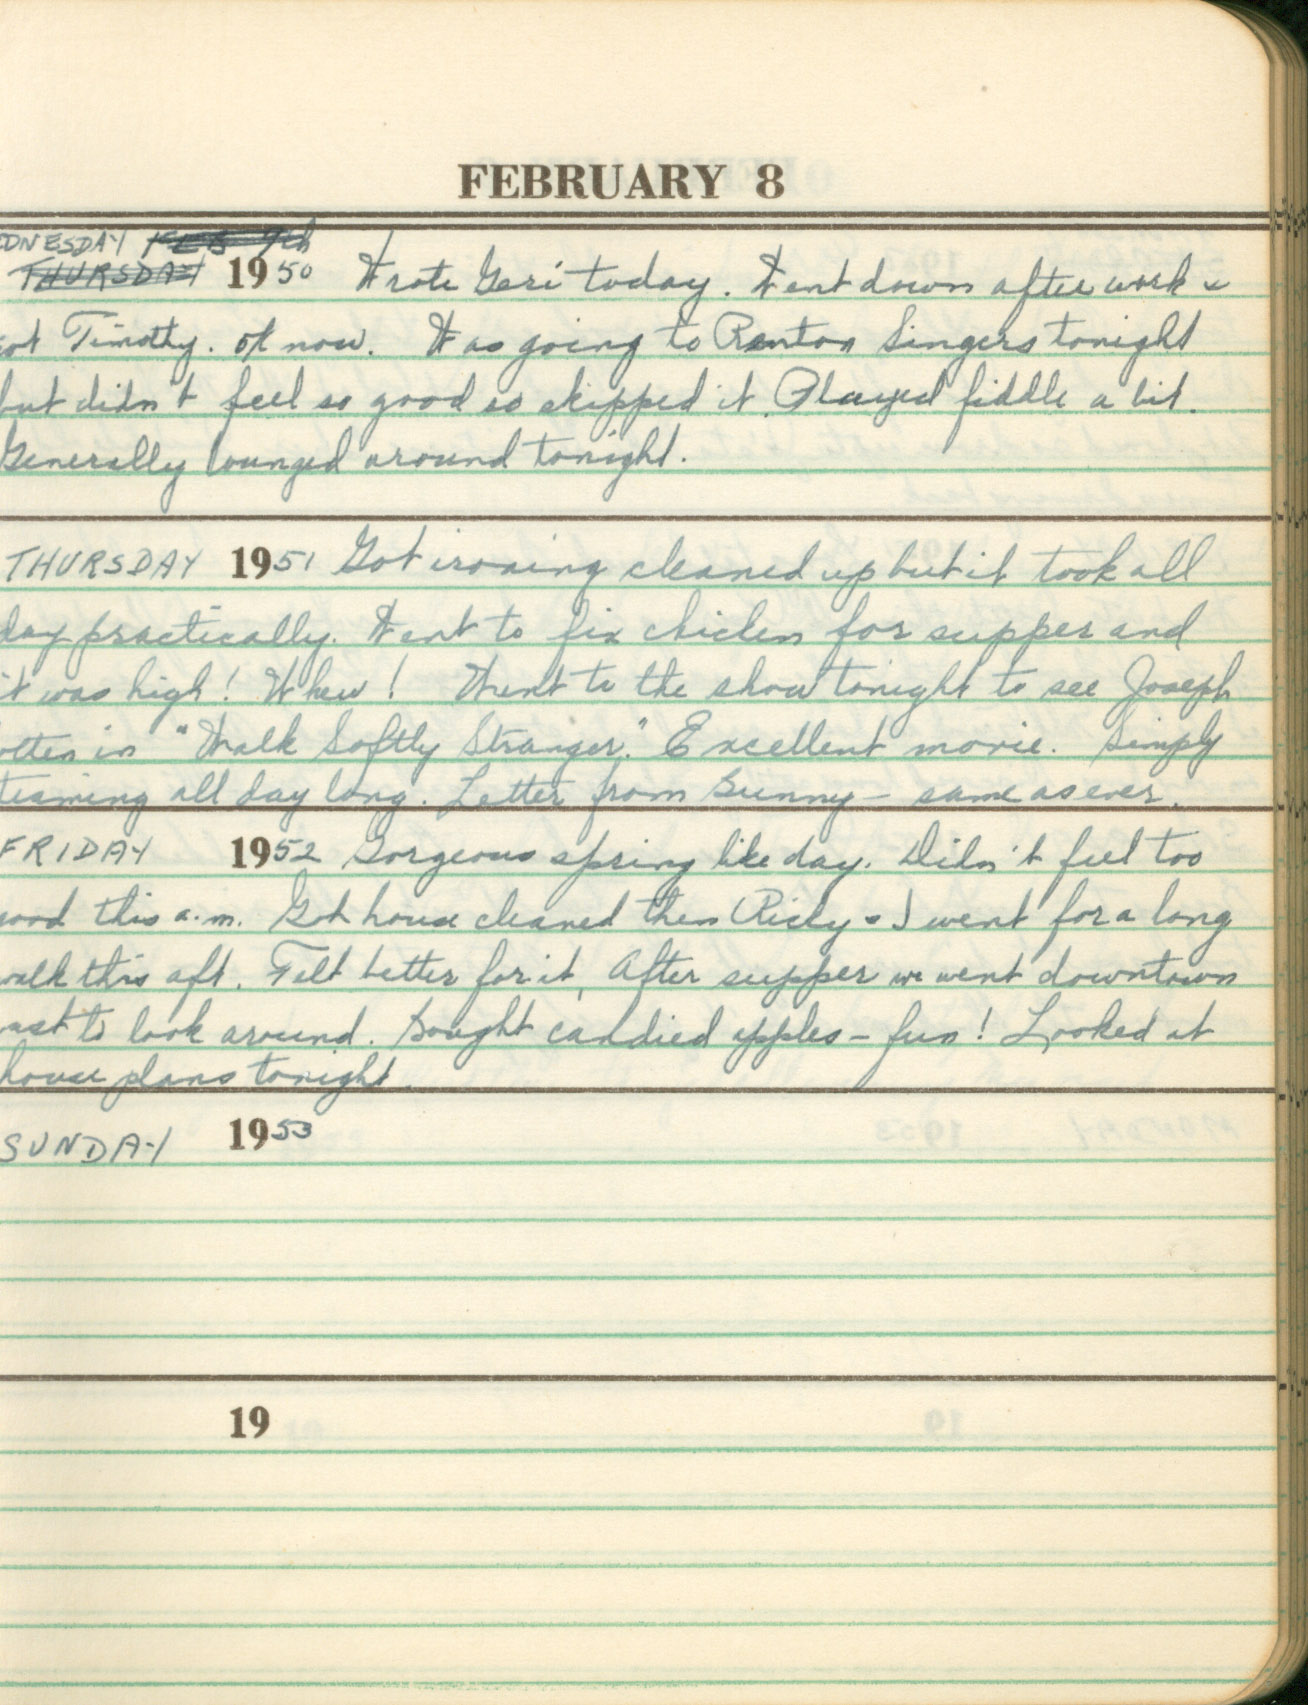 FEBRUARY 8
DNESDAY FEB 9th
THURSDAY 1950 Wrote Geri today. Went down after work &
ot Timothy. ok now. Was going to Renton Singers tonight
but didn't feel so good so skipped it. Played fiddle a bit.
Generally lounged around tonight.
THURSDAY 1951 Got ironing cleaned up but it took all
day practically. Went to fix chicken for supper and
it was high! Whew! Went to the show tonight to see Joseph
otten in "Walk Softly Stranger." Excellent movie. Simply
teaming all day long. Letter from Bunny – same as ever.
FRIDAY 1952 Gorgeous spring like day. Didn't feel too
ood this a.m. Got house cleaned then Ricky & I went for a long
walk this aft. Felt better for it. After supper we went downtown
ust to look around. Bought candied apples – fun! Looked at
house plans tonight.
SUNDAY 1953
19